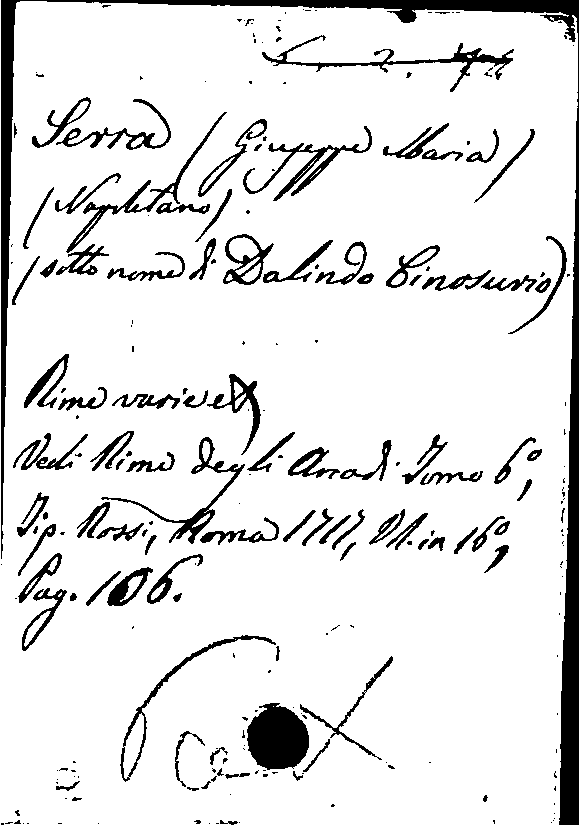 Serra (Giuseppe Maria)
(Napoletano).
(sotto nome di Dalindo Cinosurio)
Rime varie
Vedi Rime degli Arcadi Tomo 6º,
Tip. Rossi, Roma 1717, in 16º,
Pag. 106.